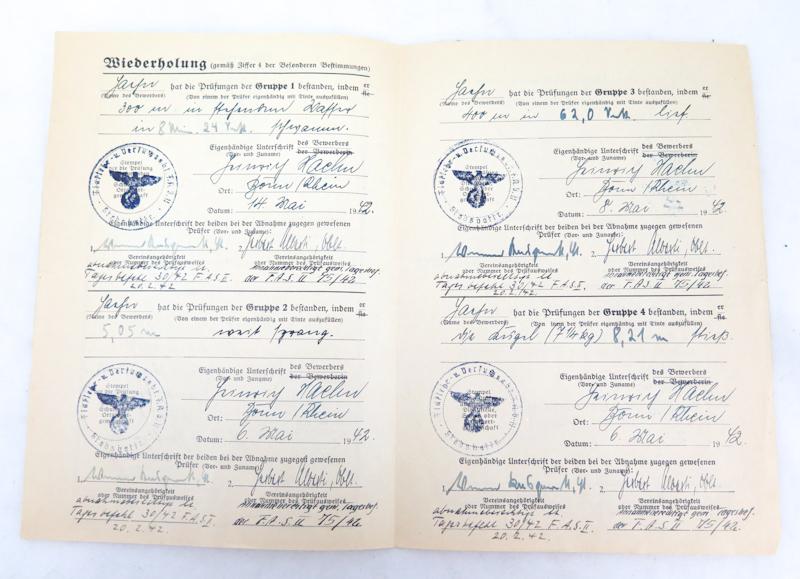 Wiederholung (gemäß Ziffer 4 der Besonderen Bestimmungen)
hat die Prüfungen der Gruppe 1 bestanden, indem er sie
(Name des Bewerbers) (Von einem der Prüfer eigenhändig mit Tinte auszufüllen)
300 m in stehendem Wasser
in 8 Min. 24 Sek. schwamm.
Eigenhändige Unterschrift des Bewerbers der Bewerberin
(Vor- und Zuname)
Stempel
für die Prüfung
Heinrich
Ort: Bonn / Rhein
Datum: 14 Mai 1942.
Eigenhändige Unterschrift der beiden bei der Abnahme zugegen gewesenen
Prüfer (Vor- und Zuname):
1. 2. Herbert Alberti, Oblt.
Vereinsangehörigkeit
oder Nummer des Prüfausweises
abnahmeberechtigt lt.
Tagesbefehl 30/42 F.A.S.II
20.2.42.
Vereinsangehörigkeit
oder Nummer des Prüfausweises
abnahmeberechtigt gem. Tagesbef.
der F.A.S. II 75/42.
hat die Prüfungen der Gruppe 2 bestanden, indem er sie
(Name des Bewerbers) (Von einem der Prüfer eigenhändig mit Tinte auszufüllen)
5,05 m weit sprang.
Eigenhändige Unterschrift des Bewerbers der Bewerberin
(Vor- und Zuname)
Stempel
Heinrich
Ort: Bonn / Rhein
Datum: 6. Mai 1942.
Eigenhändige Unterschrift der beiden bei der Abnahme zugegen gewesenen
Prüfer (Vor- und Zuname):
1. 2. Herbert Alberti, Oblt.
Vereinsangehörigkeit
oder Nummer des Prüfausweises
abnahmeberechtigt lt.
Tagesbefehl 30/42 F.A.S.II
20.2.42.
Vereinsangehörigkeit
oder Nummer des Prüfausweises
abnahmeberechtigt gem. Tagesbef.
der F.A.S. II 75/42.
hat die Prüfungen der Gruppe 3 bestanden, indem er sie
(Name des Bewerbers) (Von einem der Prüfer eigenhändig mit Tinte auszufüllen)
400 m in 62,0 Sek. lief.
Eigenhändige Unterschrift des Bewerbers der Bewerberin
(Vor- und Zuname)
Stempel
Heinrich
Ort: Bonn / Rhein
Datum: 8. Mai 1942.
Eigenhändige Unterschrift der beiden bei der Abnahme zugegen gewesenen
Prüfer (Vor- und Zuname):
1. 2. Herbert Alberti, Oblt.
Vereinsangehörigkeit
oder Nummer des Prüfausweises
abnahmeberechtigt lt.
Tagesbefehl 30/42 F.A.S.II.
20.2.42.
Vereinsangehörigkeit
oder Nummer des Prüfausweises
abnahmeberechtigt gem. Tagesbef.
der F.A.S. II 75/42.
hat die Prüfungen der Gruppe 4 bestanden, indem er sie
(Name des Bewerbers) (Von einem der Prüfer eigenhändig mit Tinte auszufüllen)
die Kugel (7 1/4 kg) 8,21 m stieß.
Eigenhändige Unterschrift des Bewerbers der Bewerberin
(Vor- und Zuname)
Stempel
Heinrich
Ort: Bonn / Rhein
Datum: 6 Mai 1942.
Eigenhändige Unterschrift der beiden bei der Abnahme zugegen gewesenen
Prüfer (Vor- und Zuname):
1. 2. Herbert Alberti, Oblt.
Vereinsangehörigkeit
oder Nummer des Prüfausweises
abnahmeberechtigt lt.
Tagesbefehl 30/42 F.A.S.II.
20.2.42.
Vereinsangehörigkeit
oder Nummer des Prüfausweises
abnahmeberechtigt gem. Tagesbef.
der F.A.S. II 75/42.